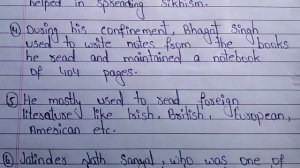 helped in spreading Sikhism.
④ During his confinement, Bhagat Singh
used to write notes from the books
he read and maintained a notebook
of 404 pages.
⑤ He mostly used to read foreign
literatures like Irish, British, European,
American etc.
⑥ Jatinder Nath Sanyal, who was one of